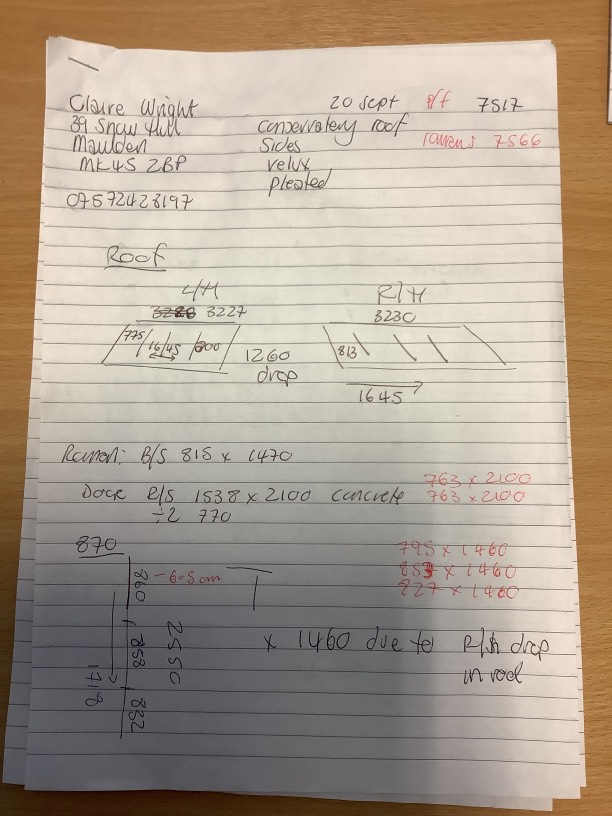 Claire Wright
20 sept
7517
39 Snow Hill
conservatory roof
Maulden
Sides
7566
MK45 2BP
velux
pleated
07572423197
Roof
L/H
R/H
3227
3230
775
1645
800
813
1260
drop
1645
Raven: B/S 815 x 1470
763 x 2100
Door R/S 1538 x 2100 concrete
763 x 2100
÷2 770
870
795 x 1460
860
- 6.5 cm
x 1460
827 x 1460
2550
858
x 1460 due to R/h drop
in rod
1718
832